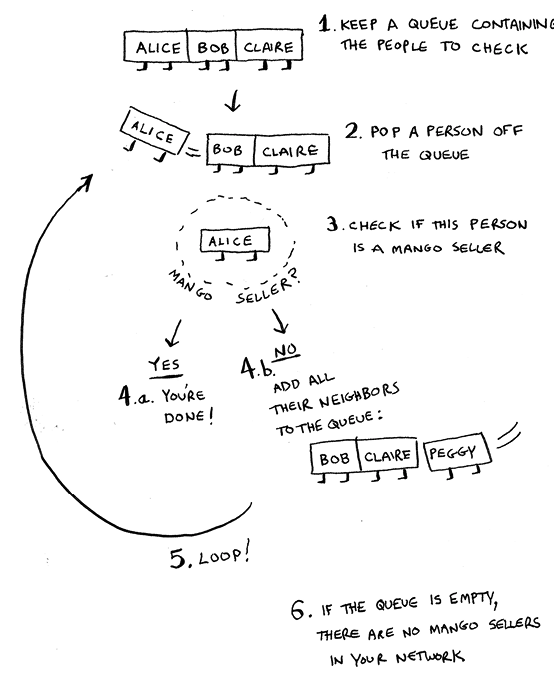 ALICE BOB CLAIRE
1. KEEP A QUEUE CONTAINING
THE PEOPLE TO CHECK
ALICE BOB CLAIRE
2. POP A PERSON OFF
THE QUEUE
ALICE
MANGO SELLER?
3. CHECK IF THIS PERSON
IS A MANGO SELLER
YES
4.a. YOU'RE
DONE!
NO
4.b.
ADD ALL
THEIR NEIGHBORS
TO THE QUEUE:
BOB CLAIRE PEGGY
5. LOOP!
6. IF THE QUEUE IS EMPTY,
THERE ARE NO MANGO SELLERS
IN YOUR NETWORK